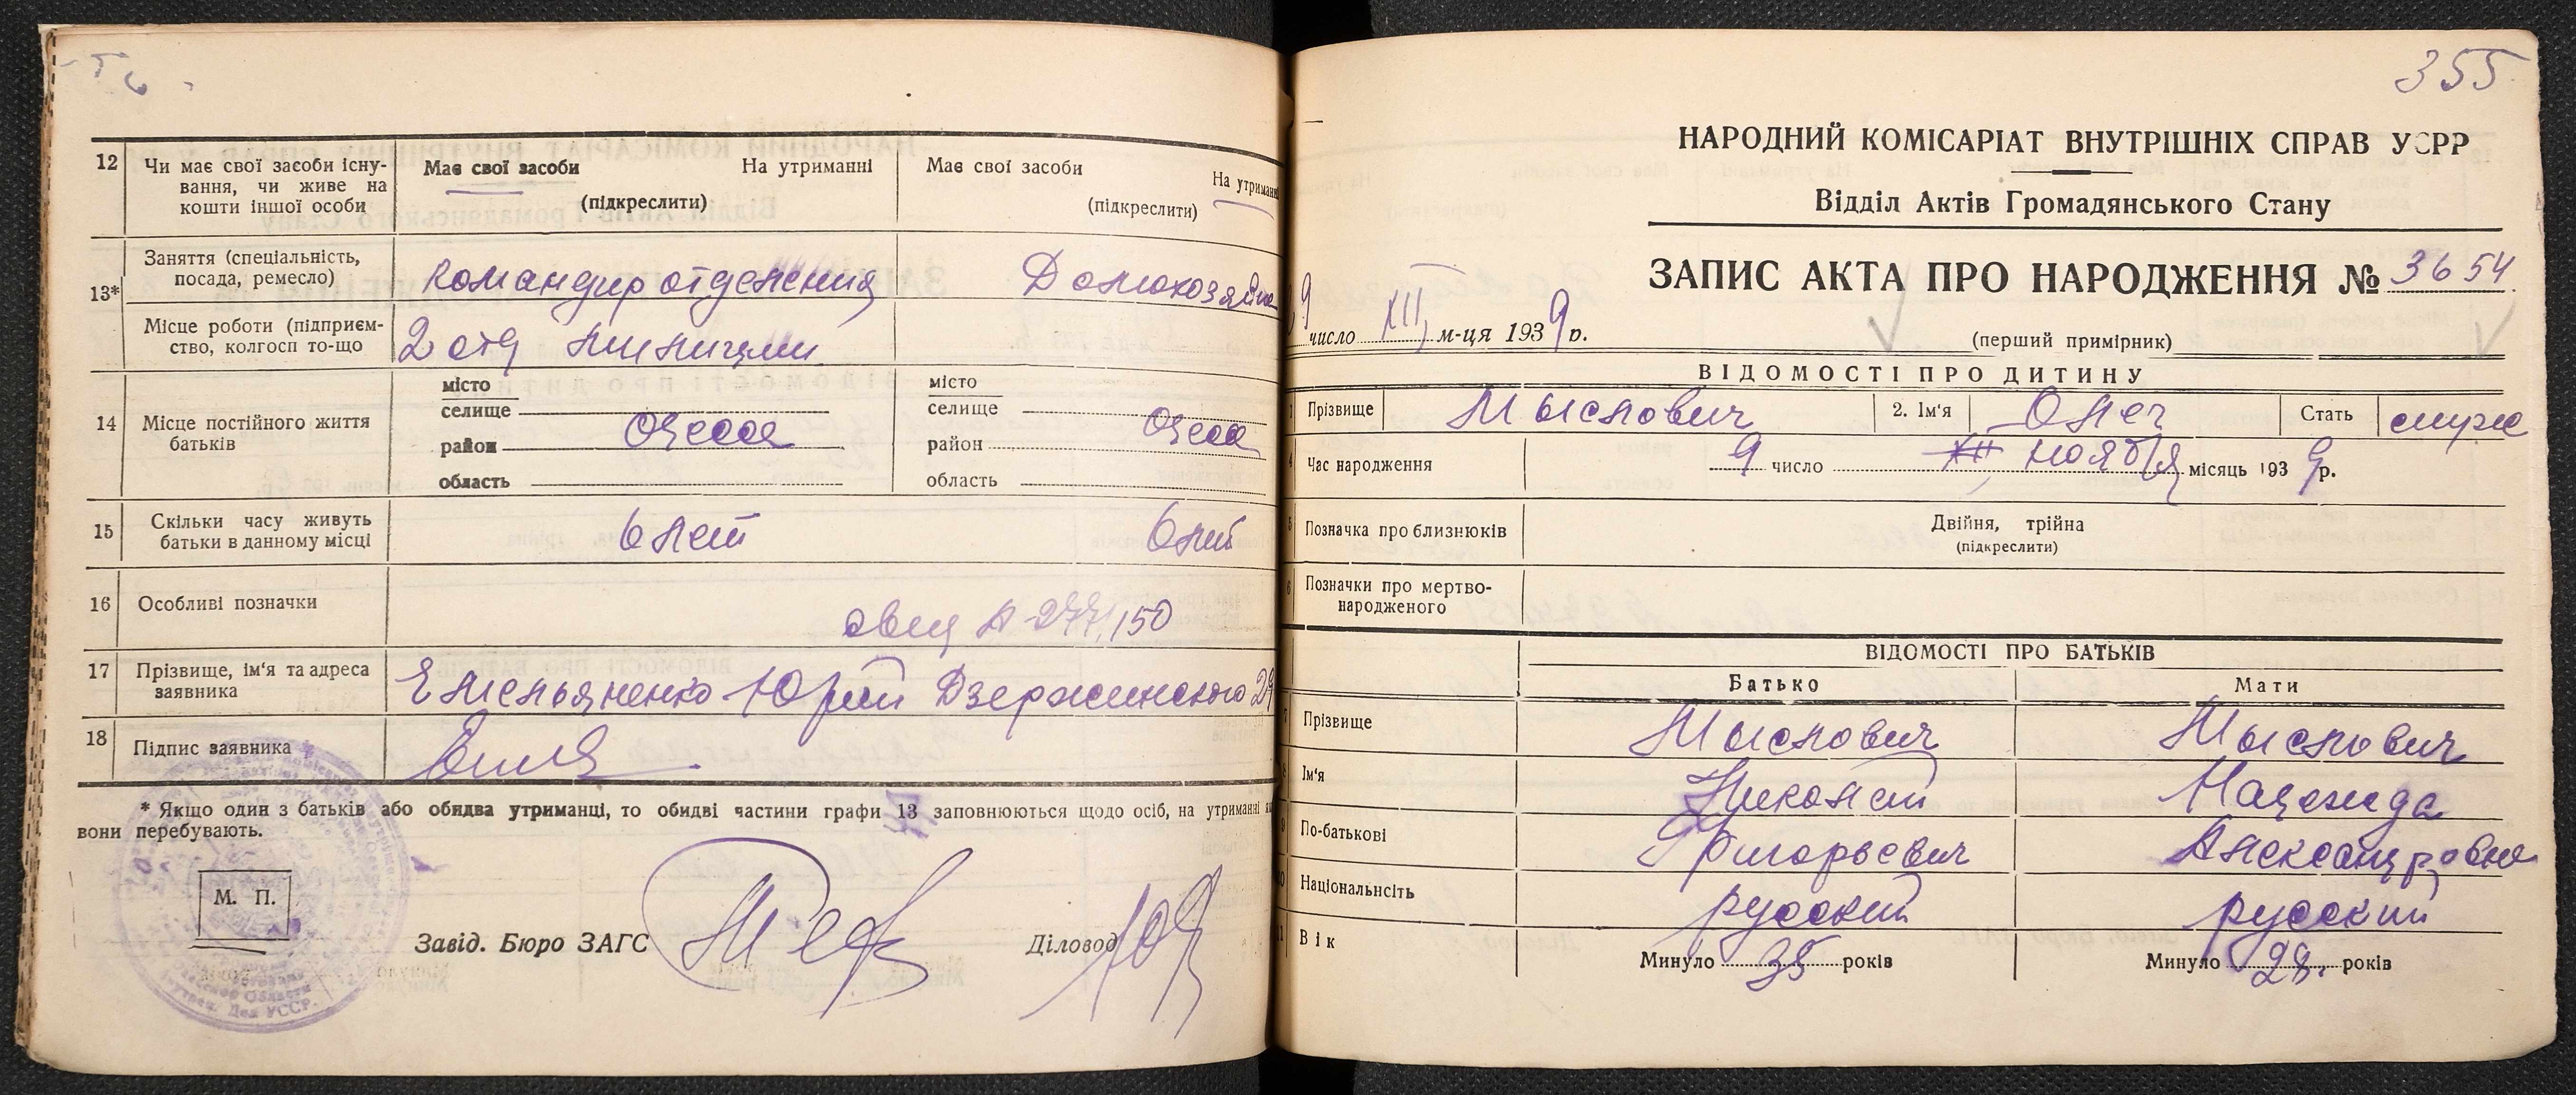 12
Чи має свої засоби існу-
вання, чи живе на
кошти іншої особи
Має свої засоби На утриманні
(підкреслити)
Має свої засоби На утриманні
(підкреслити)
13*
Заняття (спеціальність,
посада, ремесло)
командир отделения
Домохозяйка
Місце роботи (підприєм-
ство, колгосп то-що
2 отд милиции
14
Місце постійного життя
батьків
місто
селище
район Одесса
область
місто
селище
район Одесса
область
15
Скільки часу живуть
батьки в данному місці
6 лет
6 лет
16
Особливі позначки
17
Прізвище, ім'я та адреса
заявника
Емельяненко Юрий Дзержинского 29
18
Підпис заявника
* Якщо один з батьків або обидва утриманці, то обидві частини графи 13 заповнюються щодо осіб, на утриманні
вони перебувають.
М. П.
Завід. Бюро ЗАГС
Діловод
355
НАРОДНИЙ КОМІСАРІАТ ВНУТРІШНІХ СПРАВ УСРР
Відділ Актів Громадянського Стану
ЗАПИС АКТА ПРО НАРОДЖЕННЯ № 3654
число XII м-ця 1939 р.
(перший примірник)
ВІДОМОСТІ ПРО ДИТИНУ
Прізвище Мыслович 2. Ім'я Олег Стать муж
4 Час народження 9 число XII ноября місяць 1939 р.
Позначка про близнюків
Двійня, трійна
(підкреслити)
6 Позначки про мертво-
народженого
ВІДОМОСТІ ПРО БАТЬКІВ
Батько Мати
Прізвище Мыслович Мыслович
Ім'я Николай Надежда
По-батькові Григорьевич Александровна
Національнсість русский русский
Вік Минуло 35 років Минуло 28 років